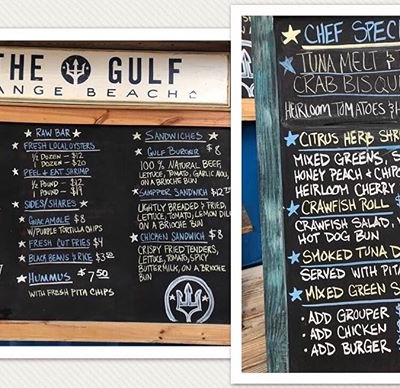 THE GULF
ANGE BEACH
RAW BAR
FRESH LOCAL OYSTERS
½ DOZEN - $12
DOZEN - $20
PEEL & EAT SHRIMP
½ POUND - $12
1 POUND -
SIDES/SHARES
GUACAMOLE $8
W/PURPLE TORTILLA CHIPS
FRESH CUT FRIES $4
BLACK BEANS & RICE $3.50
HUMMUS $7.50
WITH FRESH PITA CHIPS
SANDWICHES
GULF BURGER $8
100% NATURAL BEEF,
LETTUCE, TOMATO, GARLIC AIOLI,
ON A BRIOCHE BUN
SNAPPER SANDWICH $12.50
LIGHTLY BREADED & FRIED,
LETTUCE, TOMATO, LEMON DILL
ON A BRIOCHE BUN
CHICKEN SANDWICH $8
CRISPY FRIED TENDERS,
LETTUCE, TOMATO, SPICY
BUTTERMILK, ON A BRIOCHE
BUN
CHEF SPECI
TUNA MELT &
CRAB BISQU
HEIRLOOM TOMATOES
CITRUS HERB SHR
MIXED GREENS, S
HONEY PEACH & CHIPO
HEIRLOOM CHERRY
CRAWFISH ROLL $
CRAWFISH SALAD,
HOT DOG BUN
SMOKED TUNA D
SERVED WITH PITA
MIXED GREEN S
• ADD GROUPER
• ADD CHICKEN
• ADD BURGER